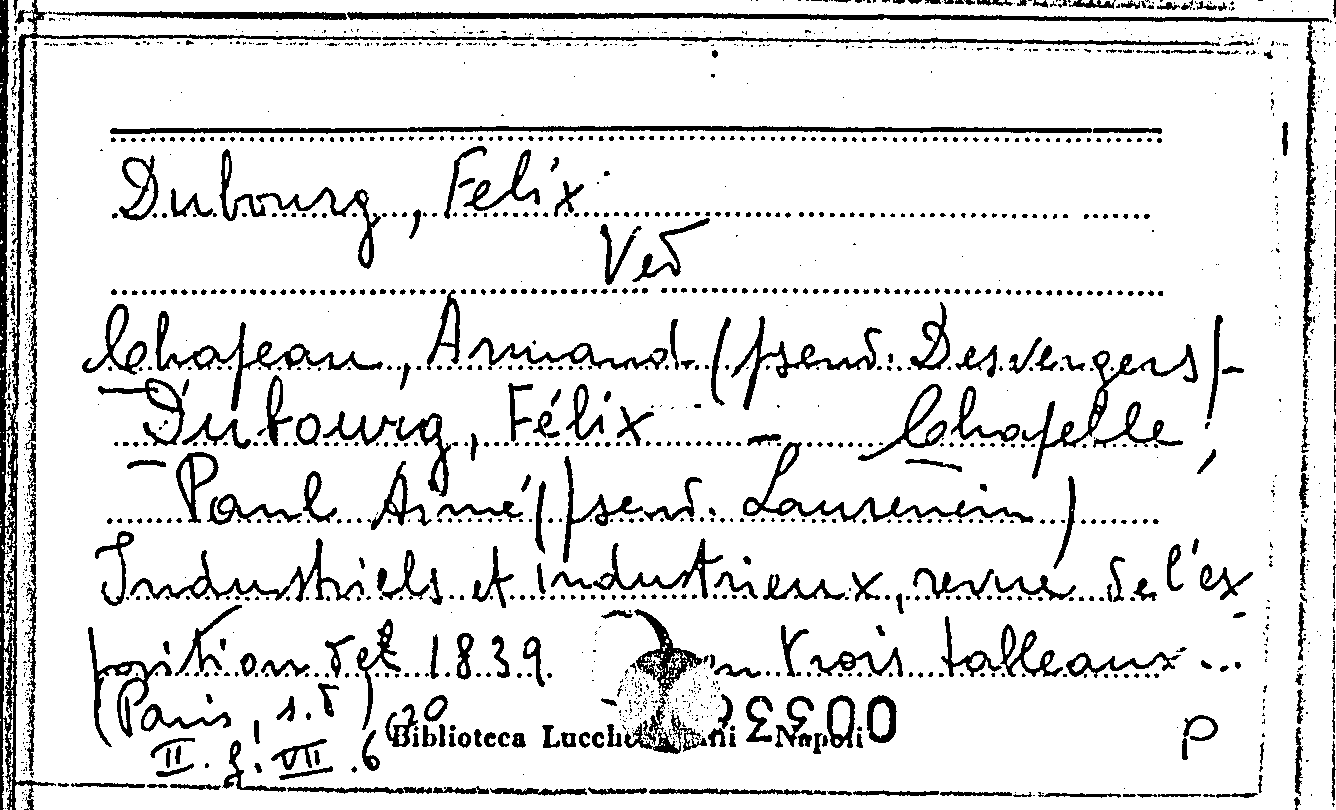 Dubourg, Felix
Ved
Chapeau, Armand (pseud. Desvergers) -
Dubourg, Félix - Chapelle,
Paul Aimé (pseud. Laurencin)
Industriels et industrieux, revue de l'ex
position de 1839 en trois tableaux...
(Paris, s.d)
Biblioteca Lucchesi Napoli
II. f. VII .6
P